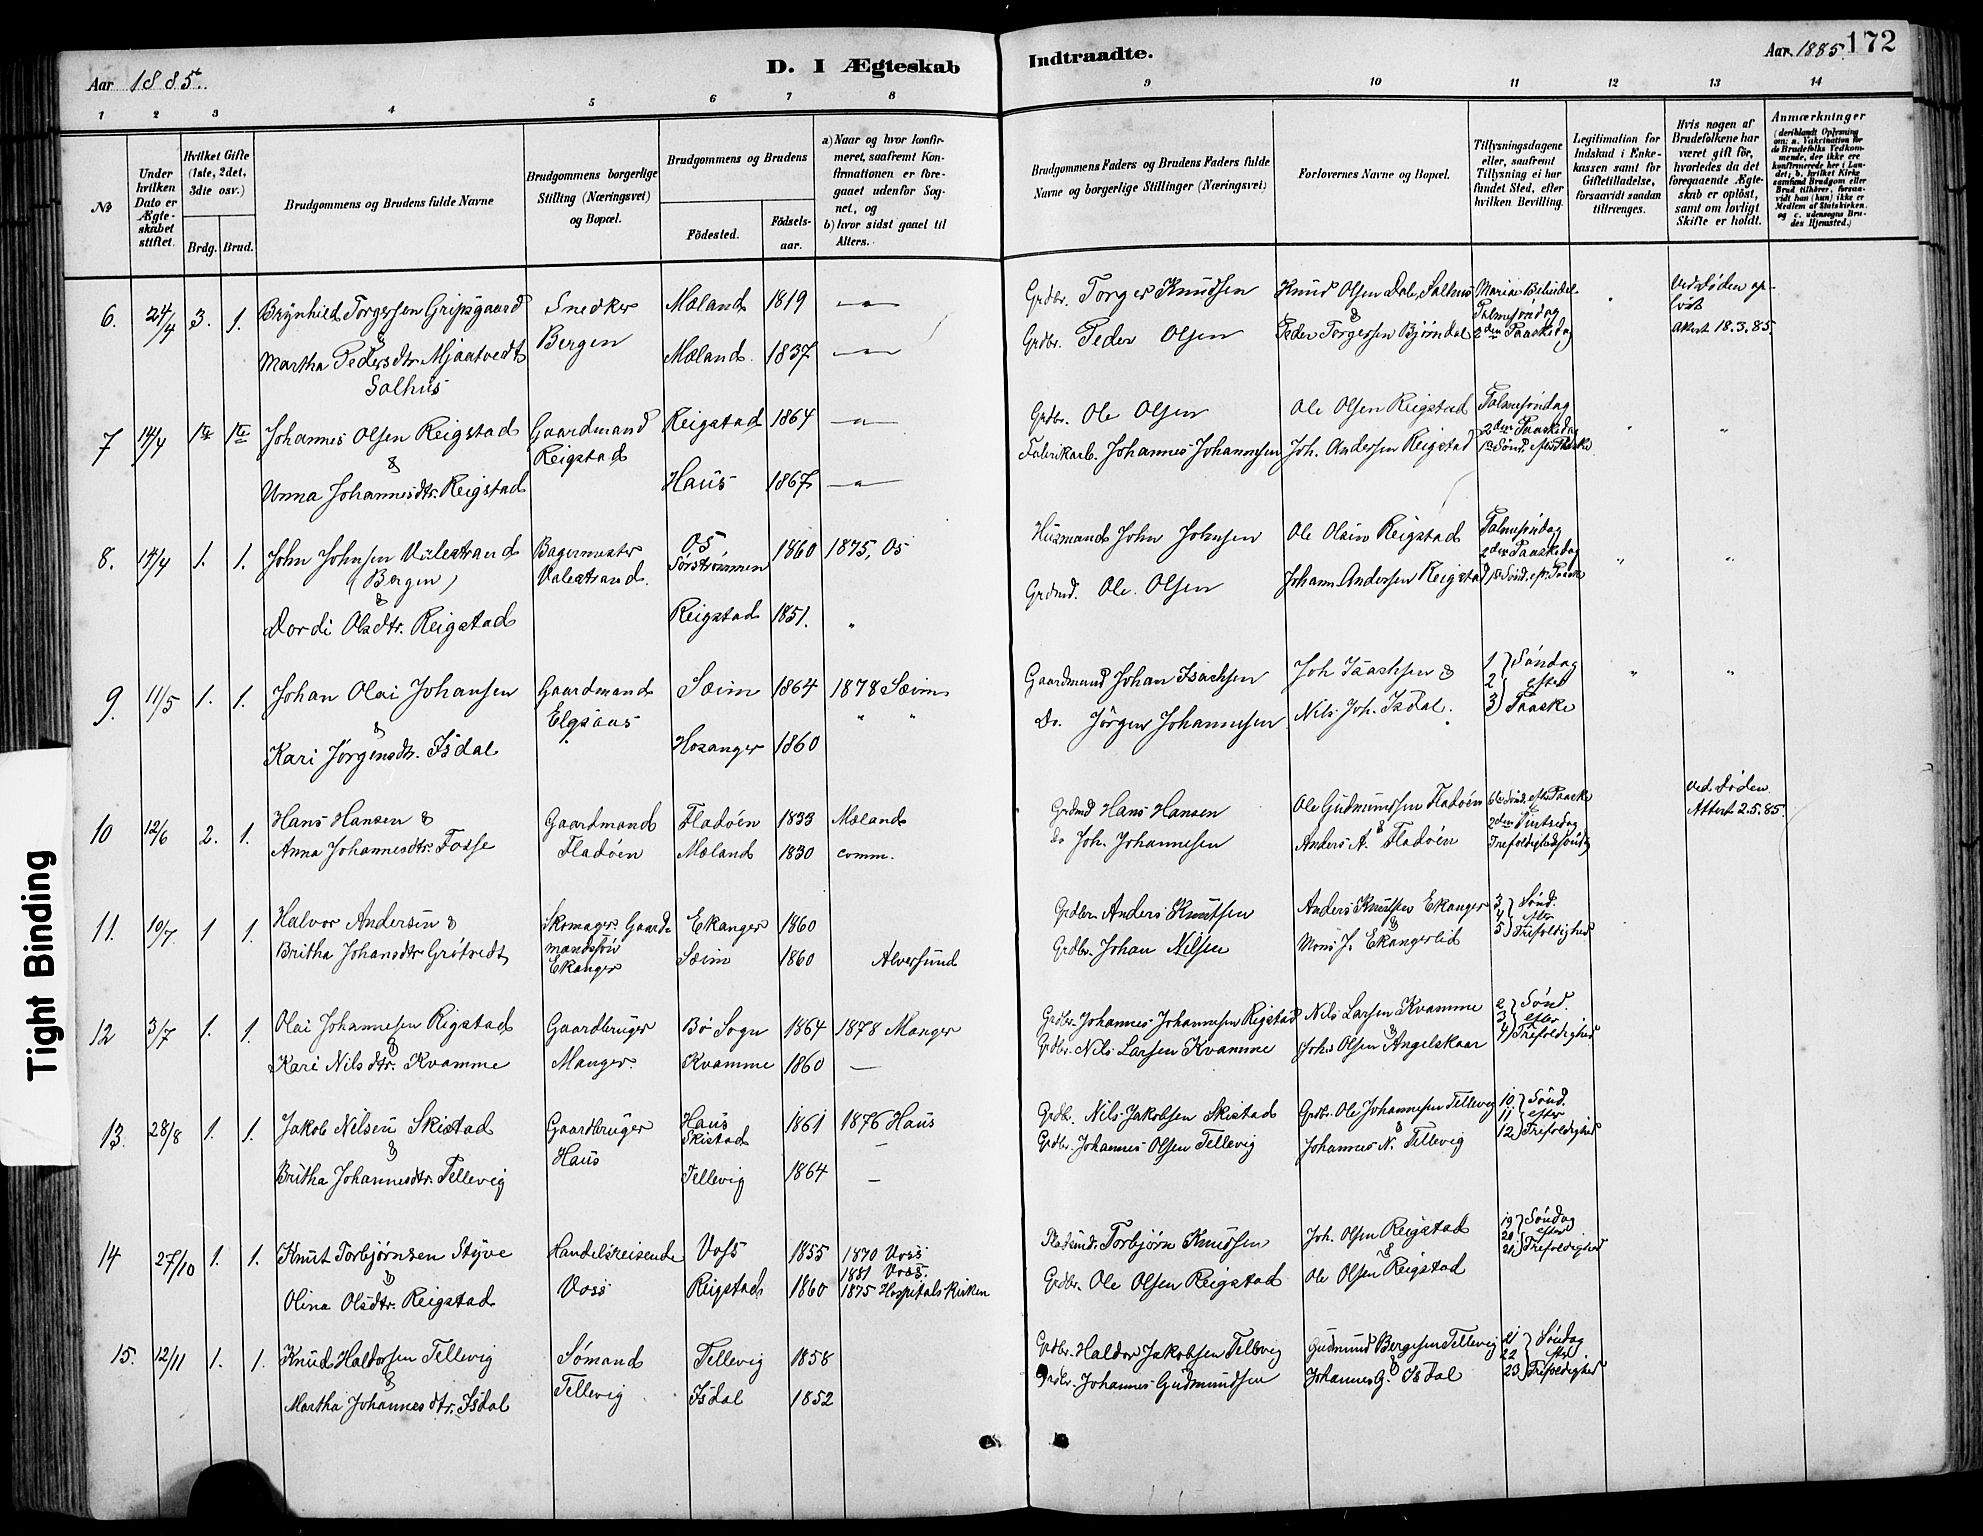 Aar 1885.
D. I Ægteskab Indtraadte.
Aar 1885 172
1 2 3 4 5 6 7 8 9 10 11 12 13 14
No
Under hvilken Dato er Ægteskabet stiftet.
Hvilket Gifte (1ste, 2det, 3die osv.)
Brdg. Brud.
Brudgommens og Brudens fulde Navne
Brudgommens borgerlige Stilling (Næringsvei) og Bopæl.
Brudgommens og Brudens
Fødested.
Fødselsaar.
a) Naar og hvor konfirmeret, saafremt Konfirmationen er foregaaet udenfor Sognet, og
b) hvor sidst gaaet til Alters.
Brudgommens Faders og Brudens Faders fulde Navne og borgerlige Stillinger (Næringsvei)
Forlovernes Navne og Bopæl.
Tillysningsdagene eller, saafremt Tillysning ei har fundet Sted, efter hvilken Bevilling.
Legitimation for Indskud i Enkekassen samt for Giftetilladelse, forsaavidt saadan tiltrænges.
Hvis nogen af Brudefolkene har været gift før, hvorledes da det foregaaende Ægteskab er opløst, samt om lovligt Skifte er holdt.
Anmærkninger
(deriblandt Oplysning om: a. Vakcination for de Brudefolks Vedkommende, der ikke ere konfirmerede her i Landet; b. hvilket Kirkesamfund Brudgom eller Brud tilhører, forsaavidt han (hun) ikke er Medlem af Statskirken. og c. udensogns Brudes Hjemsted.)
6. 24/4 3. 1. Brynhild Torgersen Gripsgaard Snedker Mæland 1819 — " — Grdbr. Torger Knudsen Knud Olsen Dale, Salhus Mariæ Bebudel. " Ved Døden op-
& Bergen & Palmesøndag løst
Martha Pedersdtr. Mjaatvedt Mæland. 1837 — " — Grdbr. Peder Olsen Peder Torgersen Bjørndal 2den Paaskedag Attest 18.3.85.
Salhus
7 14/4 1ste 1ste Johannes Olsen Reigstad Gaardmand Reigstad 1864 — " — Grdbr. Ole Olsen Ole Olsen Reigstad Palmesøndag " "
& Reigstad 2den Paaskedag
Unna Johannesdtr. Reigstad Haus 1867 — " — Fabrikarb. Johannes Johannesen Joh. Andersen Reigstad 1ste Sønd. efter Paaske
8. 14/4 1. 1. John Johnsen Valestrand Bagermester Os 1860 1875, Os Husmand John Johnsen Ole Olsen Reigstad Palmesøndag " "
(Bergen) Valestrand. Sørstrømmen 2den Paaskedag
& Johann. Andersen Reigstad 1ste Sønd. eft. Paaske
Dordi Olsdtr. Reigstad Reigstad 1851. " Grdmd. Ole Olsen
9. 11/5 1. 1. Johan Olai Johansen Gaardmand Sæim 1864 1878 Sæim Gaardmand Johan Isachsen Joh Isachsen & 1 Søndag " "
& Elgsaas " " 2 efter
Kari Jørgensdtr. Isdal Hosanger 1860 Do. Jørgen Johannesen Nils Joh. Isdal. 3 Paaske
10 12/6 2. 1. Hans Hansen & Gaardmand Fladøen 1833 Mæland Grdmd Hans Hansen Ole Gudmundsen Fladøen 6te Sønd. efter Paaske Ved Døden.
Anna Johannesdtr. Fosse Fladøen Mæland 1830 comm. do Joh. Johannesen & 2den Pintsedag Attest 2.5.85.
Anders A. Fladøen Trefoldighedsøndg
11. 10/7. 1 1. Halvor Andersen & Skomager. Gaard- Ekanger 1860 Grdbr. Anders Knutsen Anders Knutsen Ekanger 3 Sønd.
Britha Johansdtr Grøtvedt mandssøn Sæim 1860 Alversund Grdbr. Johan Nilsen & 4 efter
Ekanger Mons J. Ekangerlid 5 Trefoldighed
12 3/7 1. 1. Olai Johannesen Rigstad Gaardbruger Bø Sogn 1864 1878 Manger Grdbr. Johannes Johannesen Rigstad Nils Larsen Kvamme 2 Sønd.
& & 3 efter
Kari Nilsdtr. Kvamme Manger. Kvamme 1860 — Grdbr. Nils Larsen Kvamme Johs Olsen Angelskaar 4 Trefoldighed
13. 28/8 1. 1. Jakob Nilsen Skistad Gaardbruger Haus 1861 1876 Haus Grdbr. Nils Jakobsen Skistad Grdbr. Ole Johannesen Tellevig 10 Sønd.
& Haus Skistad — & 11 efter
Britha Johannesdtr. Tellevig Tellevig 1864 — Grdbr. Johannes Olsen Tellevig Johannes N. Tellevig 12 Trefoldighed
14 27/10 1. 1. Knut Torbjørnsen Styve Handelsreisende Voss 1855 1870 Voss Torbjørn Knudsen Joh. Olsen Reigstad 19 Søndag
& 1881 Voss. & 20 efter
Olina Olsdtr. Reigstad Voss Reigstad 1860 1875 Hospitals Kirken Grdbr. Ole Olsen Reigstad Ole Olsen Reigstad 21 Trefoldighed
15. 12/11 1. 1. Knud Haldorsen Tellevig Sømand Tellevig 1858 Grdbr. Haldor Jakobsen Tellevig Gudmund Bergesen Tellevig 21 Søndag
& & 22 eftr
Martha Johannesdtr. Isdal Tellevig Isdal 1852 Grdbr. Johannes Gudmundsen Johannes G. Isdal 23 Trefoldighed
Tight Binding